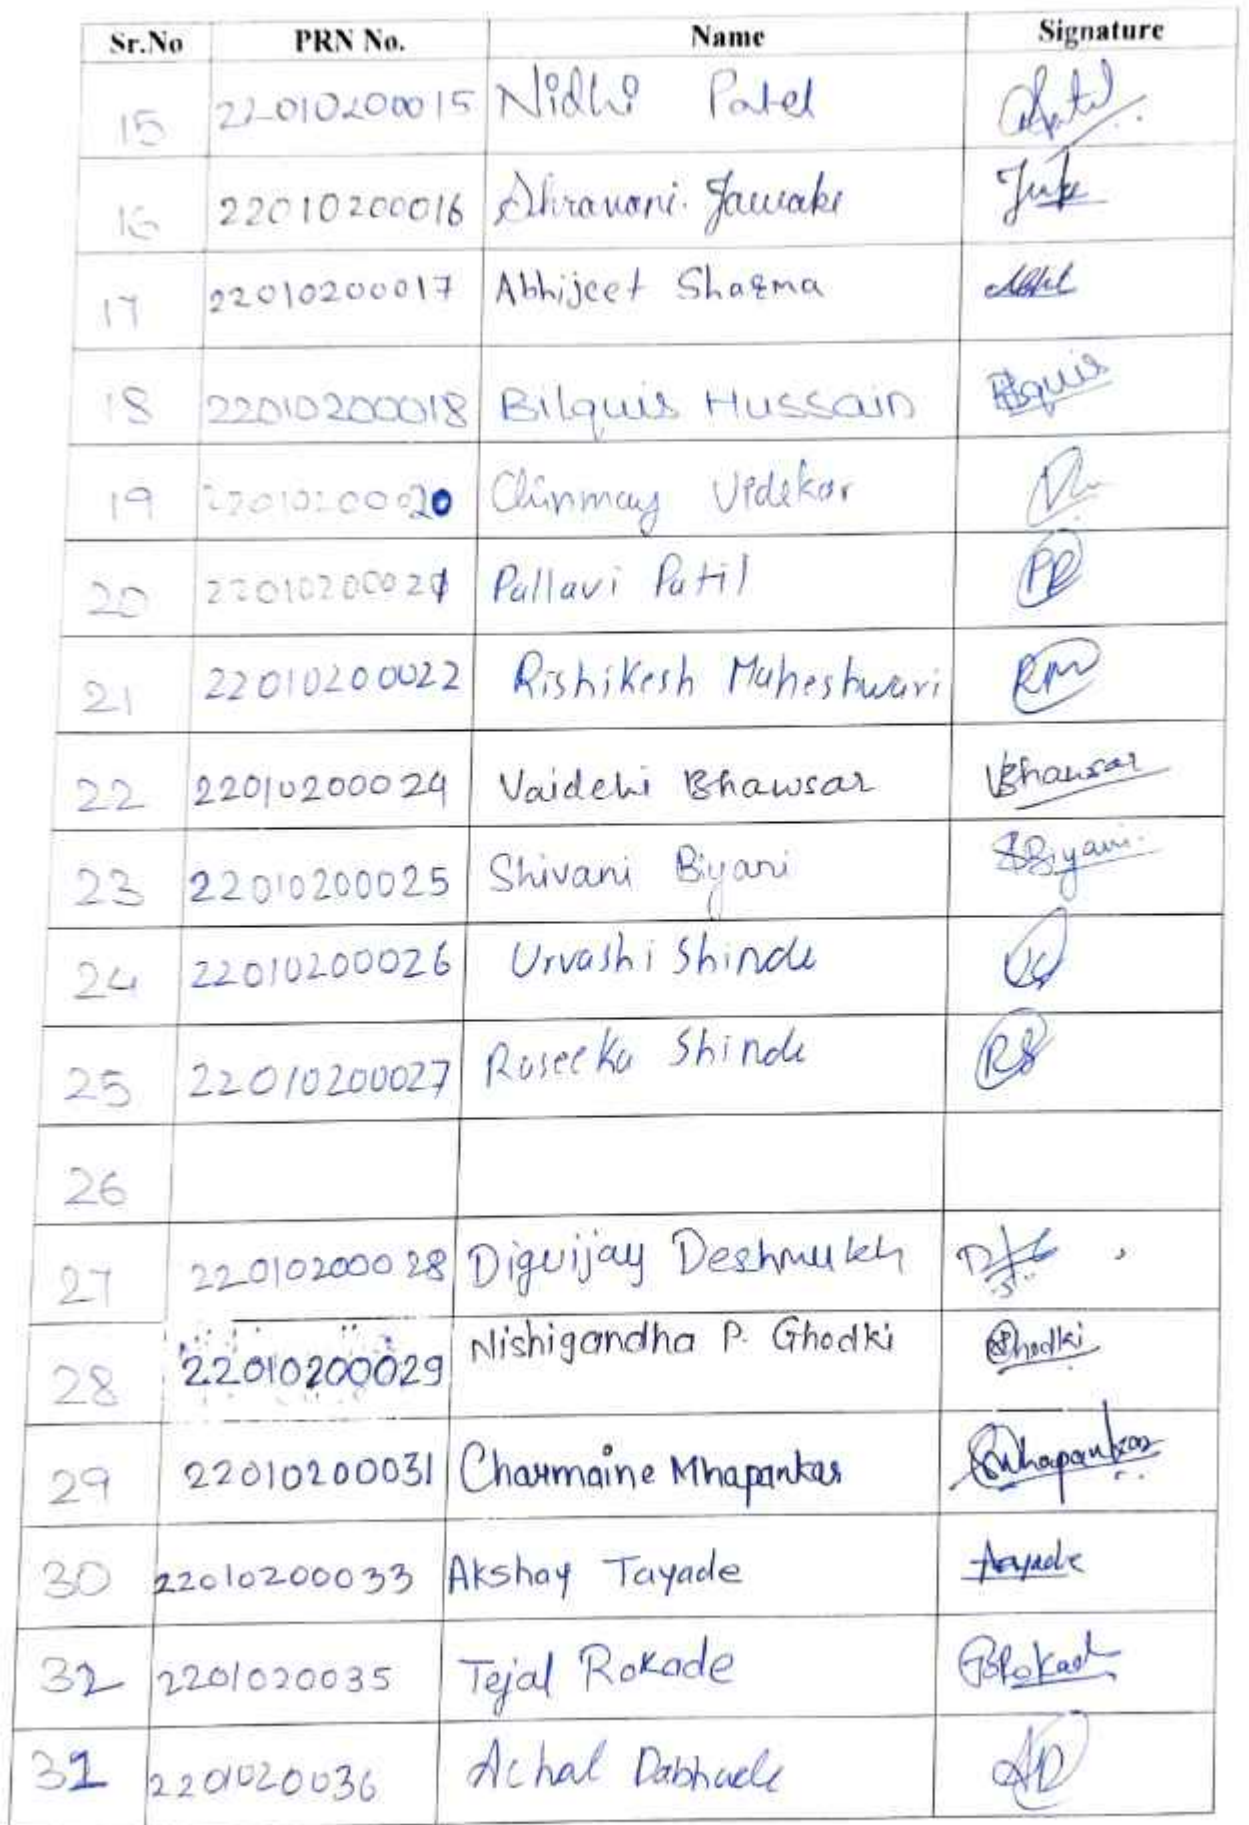 Sr.No PRN No. Name Signature
15 22010200015 Nidhi Patel
16 22010200016 Shravani Jawake
17 22010200017 Abhijeet Sharma
18 22010200018 Bilquis Hussain Bilquis
19 22010200020 Chinmay Videkar
20 22010200021 Pallavi Patil PP
21 22010200022 Rishikesh Maheshwari RM
22 22010200024 Vaidehi Bhawsar VBhawsar
23 22010200025 Shivani Biyani SBiyani
24 22010200026 Urvashi Shinde
25 22010200027 Raseeka Shinde RS
26
27 22010200028 Digvijay Deshmukh
28 22010200029 Nishigandha P. Ghodki Ghodki
29 22010200031 Charmaine Mhapankar Mhapankar
30 22010200033 Akshay Tayade Tayade
32 2201020035 Tejal Rokade
31 2201020036 Achal Dabhade AD